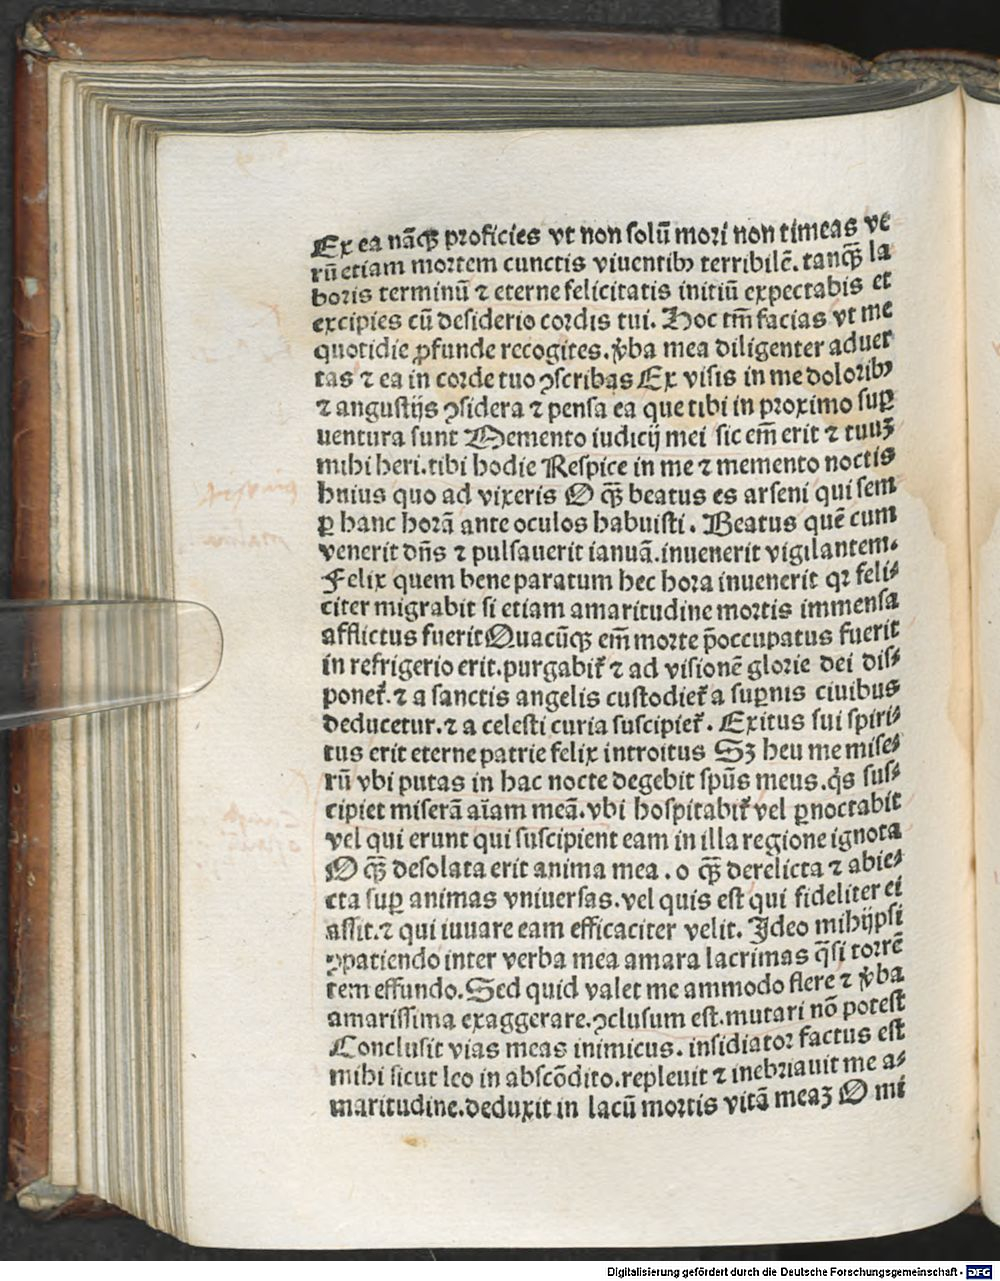 Ex ea nãqꝫ proficies vt non solũ mori non timeas ve
rũ etiam mortem cunctis viuentibꝰ terribilẽ. tanqꝫ̃ la
boris terminũ ⁊ eterne felicitatis initiũ expectabis et
excipies cũ desiderio cordis tui. Hoc tm̃ facias vt me
quotidie ꝓfunde recogites. v̾ba mea diligenter aduer
tas ⁊ ea in corde tuo ꝯscribas Ex visis in me doloribꝰ
⁊ angustijs ꝯsidera ⁊ pensa ea que tibi in proximo suꝑ
uentura sunt Memento iudicij mei sic em̃ erit ⁊ tuuꝫ
mihi heri. tibi hodie Respice in me ⁊ memento noctis
hnius quo ad vixeris O qꝫ̃ beatus es arseni qui sem
ꝑ hanc horã ante oculos habuisti. Beatus quẽ cum
venerit dñs ⁊ pulsauerit ianuã. inuenerit vigilantem.
Felix quem bene paratum hec hora inuenerit qꝛ feli⸗
citer migrabit si etiam amaritudine mortis immensa
afflictus fuerit Quacũqꝫ em̃ morte p̃occupatus fuerit
in refrigerio erit. purgabit̾ ⁊ ad visionẽ glorie dei dis⸗
ponet̾. ⁊ a sanctis angelis custodiet̾ a suꝑnis ciuibus
deducetur. ⁊ a celesti curia suscipiet̾. Exitus sui spiri⸗
tus erit eterne patrie felix introitus Sꝫ heu me mise⸗
rũ vbi putas in hac nocte degebit spũs meus. q̇s sus⸗
cipiet miserã aĩam meã. vbi hospitabit̾ vel ꝑnoctabit
vel qui erunt qui suscipient eam in illa regione ignota
O qꝫ̃ desolata erit anima mea. o qꝫ̃ derelicta ⁊ abie⸗
cta suꝑ animas vniuersas. vel quis est qui fideliter ei
assit. ⁊ qui iuuare eam efficaciter velit. Ideo mihijpsi
ꝯpatiendo inter verba mea amara lacrimas q̃si torrẽ
tem effundo. Sed quid valet me ammodo flere ⁊ v̾ba
amarissima exaggerare. ꝯclusum est. mutari nõ potest
Conclusit vias meas inimicus. insidiator factus est
mihi sicut leo in abscõdito. repleuit ⁊ inebriauit me a⸗
maritudine. deduxit in lacũ mortis vitã meaꝫ O mi
Digitalisierung gefördert durch die Deutsche Forschungsgemeinschaft - DFG